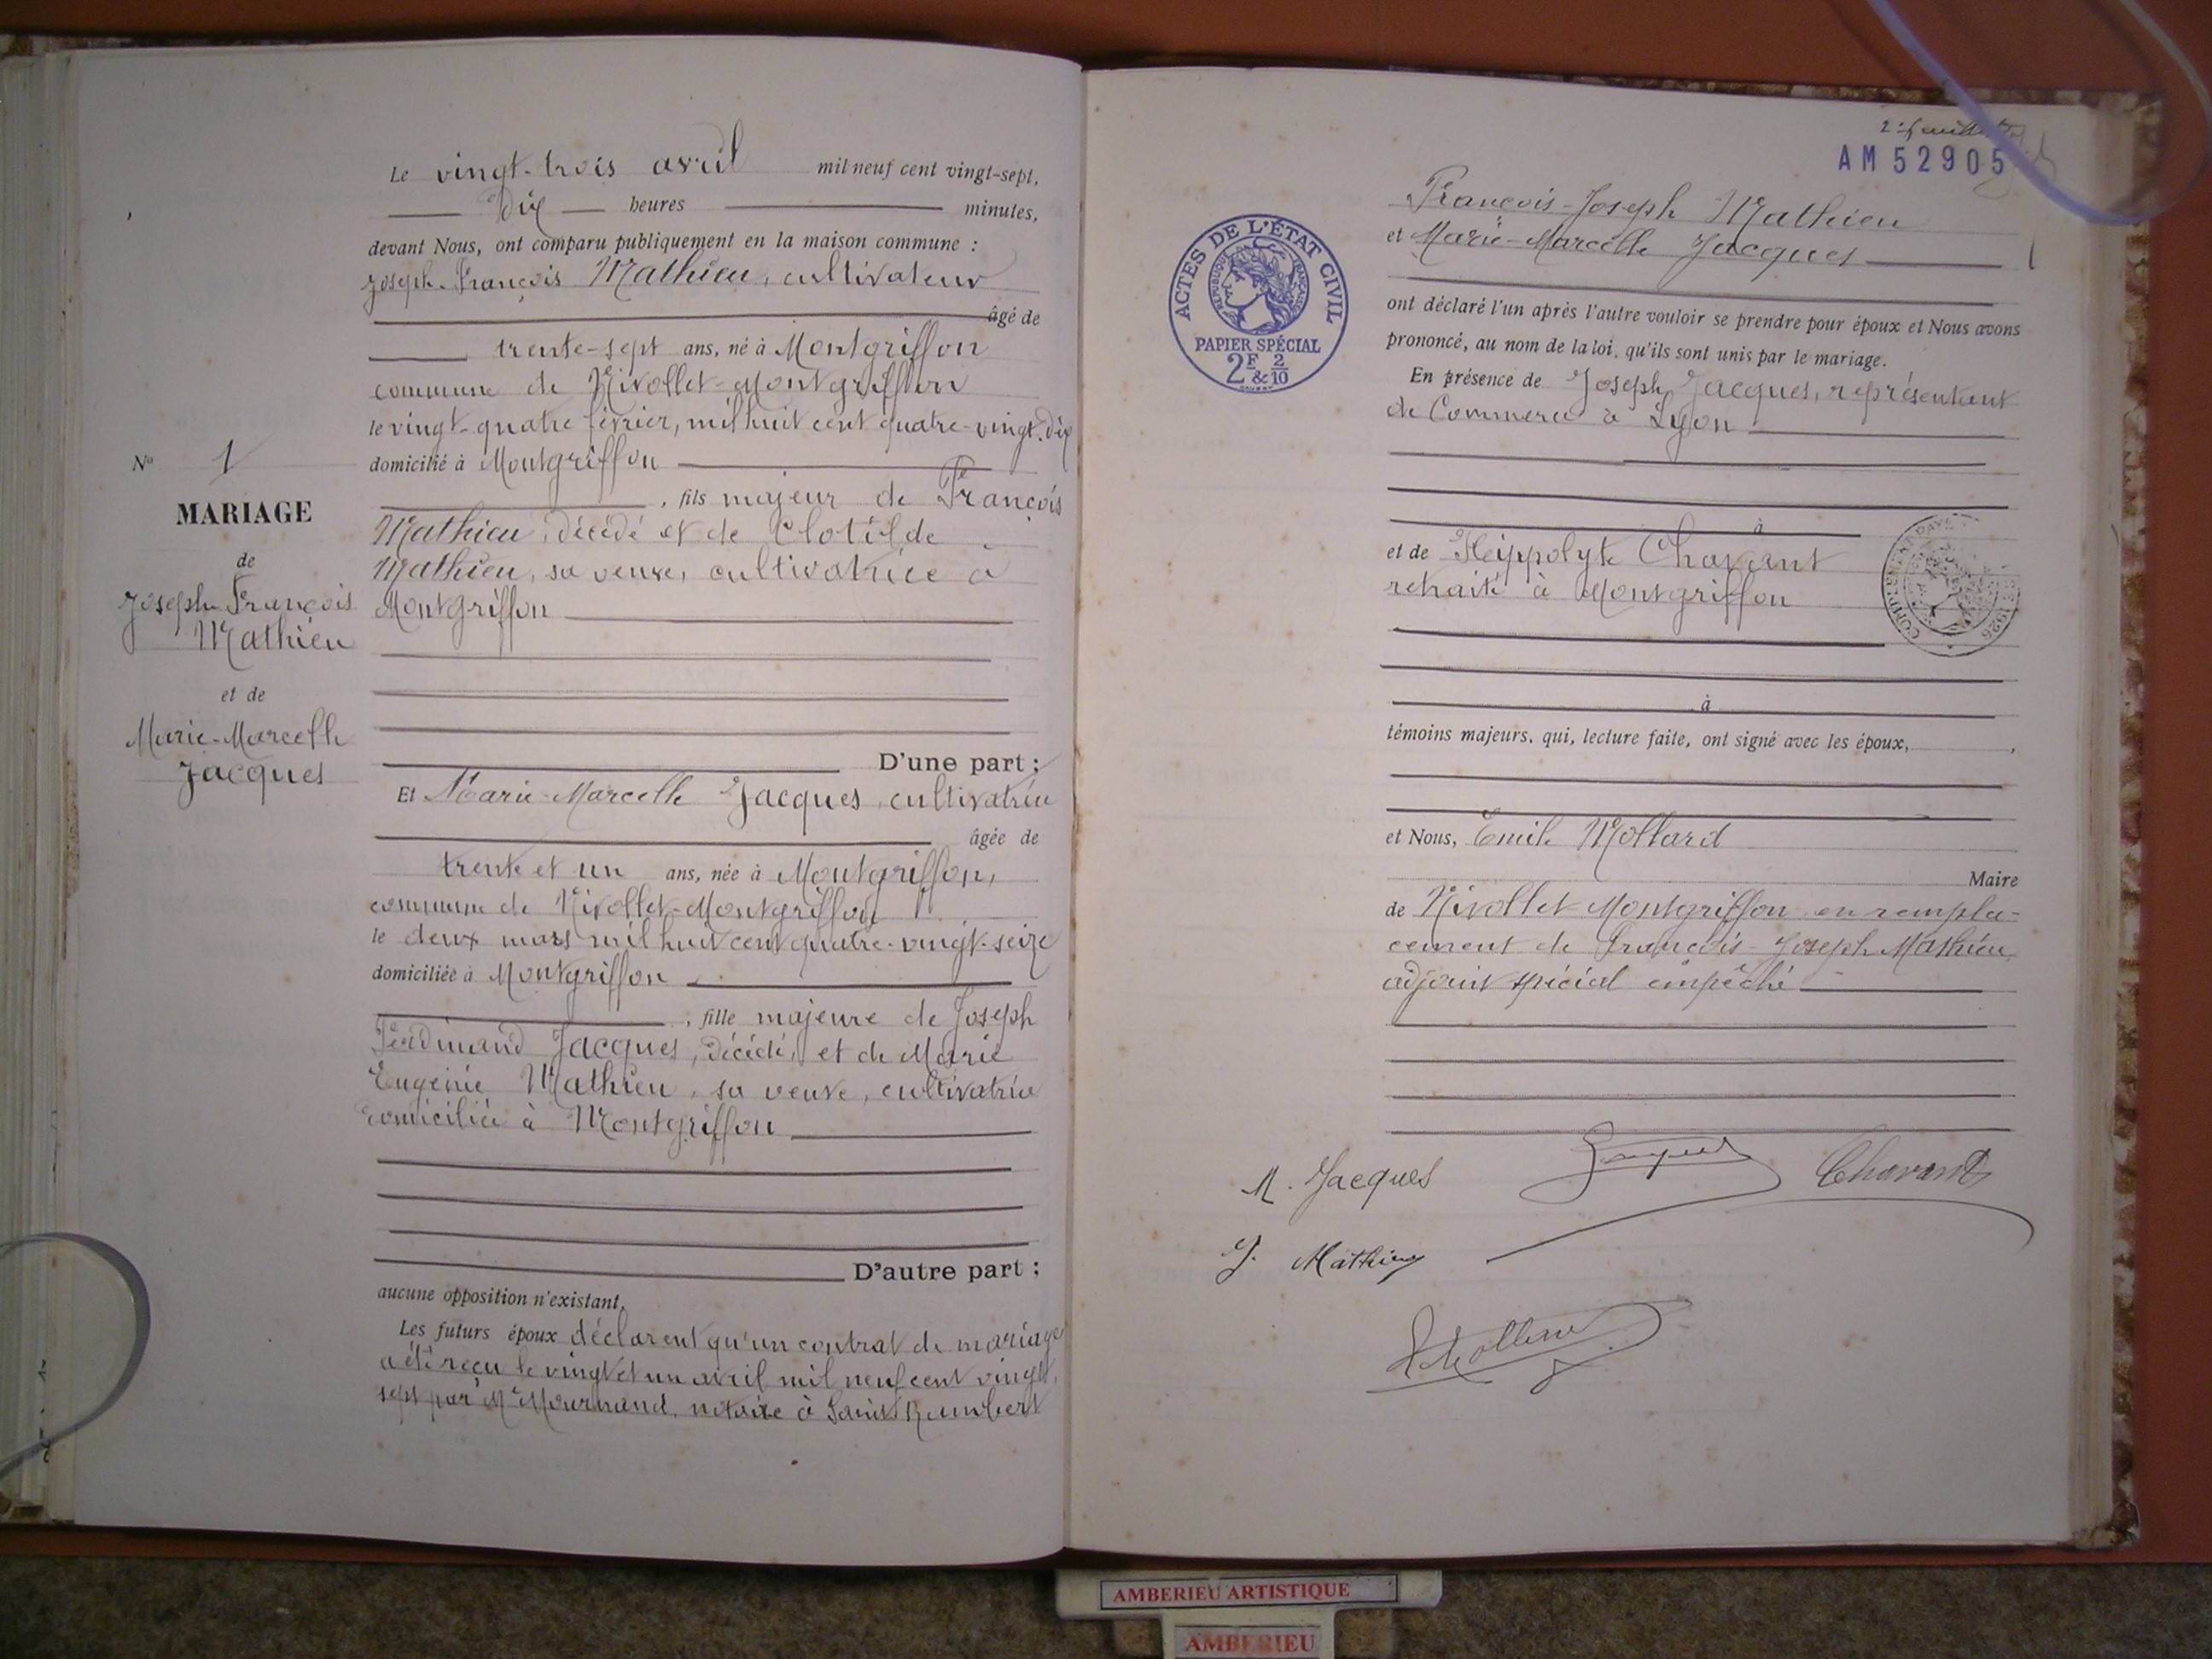 Le vingt-trois avril mil neuf cent vingt-sept,
Dix heures minutes,
devant Nous, ont comparu publiquement en la maison commune :
Joseph-François Mathieu, cultivateur
âgé de
trente-sept ans, né à Montgriffon
commune de Nivollet-Montgriffon
le vingt-quatre février, mil huit cent quatre-vingt-dix
domicilié à Montgriffon
, fils majeur de François
Mathieu, décédé et de Clotilde
Mathieu, sa veuve, cultivatrice à
Montgriffon
D'une part ;
Et Marie-Marcelle Jacques, cultivatrice
âgée de
trente et un ans, née à Montgriffon,
commune de Nivollet-Montgriffon
le deux mars mil huit cent quatre-vingt-seize
domiciliée à Montgriffon
, fille majeure de Joseph
Ferdinand Jacques, décédé, et de Marie
Eugénie Mathieu, sa veuve, cultivatrice
domiciliée à Montgriffon
D'autre part ;
aucune opposition n'existant.
Les futurs époux déclarent qu'un contrat de mariage
a été reçu le vingt et un avril mil neuf cent vingt
sept par Me Mournand, notaire à Saint Rambert
No 1
MARIAGE
de
Joseph-François
Mathieu
et de
Marie-Marcelle
Jacques
2e feuillet
AM 52905
François-Joseph Mathieu
et Marie-Marcelle Jacques
ont déclaré l'un après l'autre vouloir se prendre pour époux et Nous avons
prononcé, au nom de la loi, qu'ils sont unis par le mariage.
En présence de Joseph Jacques, représentant
de Commerce à Lyon
à
et de Heippolyte Chavant
retraité à Montgriffon
à
témoins majeurs, qui, lecture faite, ont signé avec les époux,
et Nous, Emile Mollard
Maire
de Nivollet Montgriffon en rempla-
cement de François-Joseph Mathieu
adjoint spécial empêché
ACTES DE L'ÉTAT CIVIL
RÉPUBLIQUE FRANÇAISE
PAPIER SPÉCIAL
2F & 2/10
1926
M. Jacques
Jacques
Chavant
J. Mathieu
AMBERIEU ARTISTIQUE
AMBERIEU